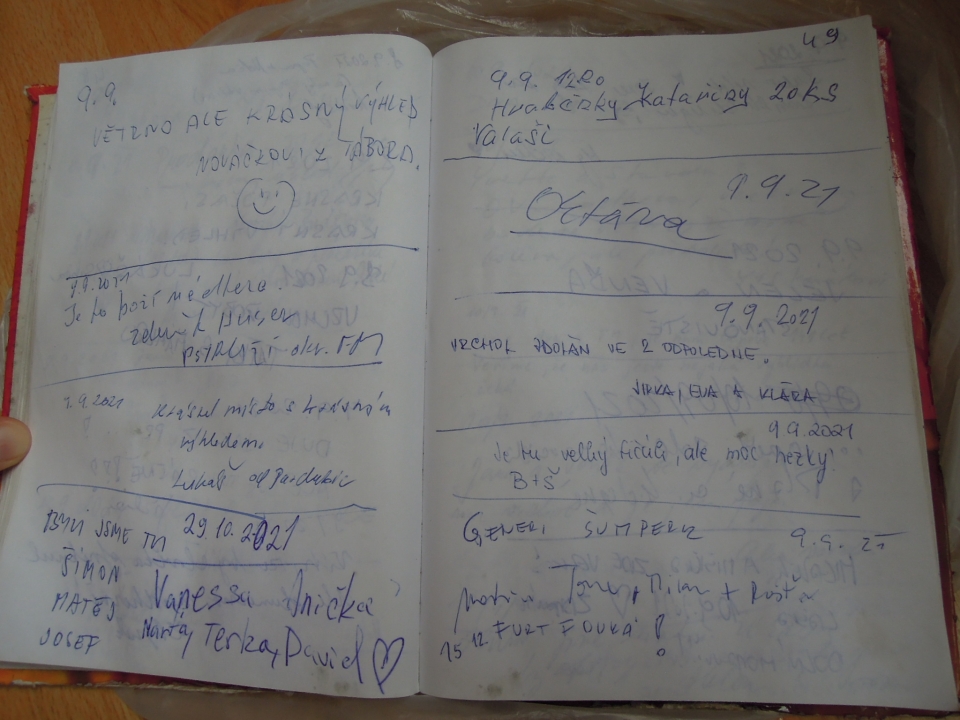 9.9.
VĚTRNO ALE KRÁSNÝ VÝHLED
NOVÁČKOVI Z TÁBORA.
9.9.2021
Je to boží nádhera
zdeněk
PSTRUŽÍ okr. FM
9.9.2021 Krásné místo s krásným
výhledem.
Lukáš od Pardubic
BYLI JSME TU 29.10.2021
ŠIMON
MATĚJ
JOSEF
Vanessa Anička
Marťa, Terka, David
49
9.9. 12:20
Hraběnky Kataríny 20KS
Valaši
9.9.21
Oktávia
9.9.2021
VRCHOL ZDOLÁN VE 2 ODPOLEDNE.
JIRKA, EVA A KLÁRA
9.9.2021
Je tu velký fičák, ale moc hezký!
B+Š
GENERI ŠUMPERK 9.9.21
Tomy, Milan +
15.12. FURT FOUKÁ!